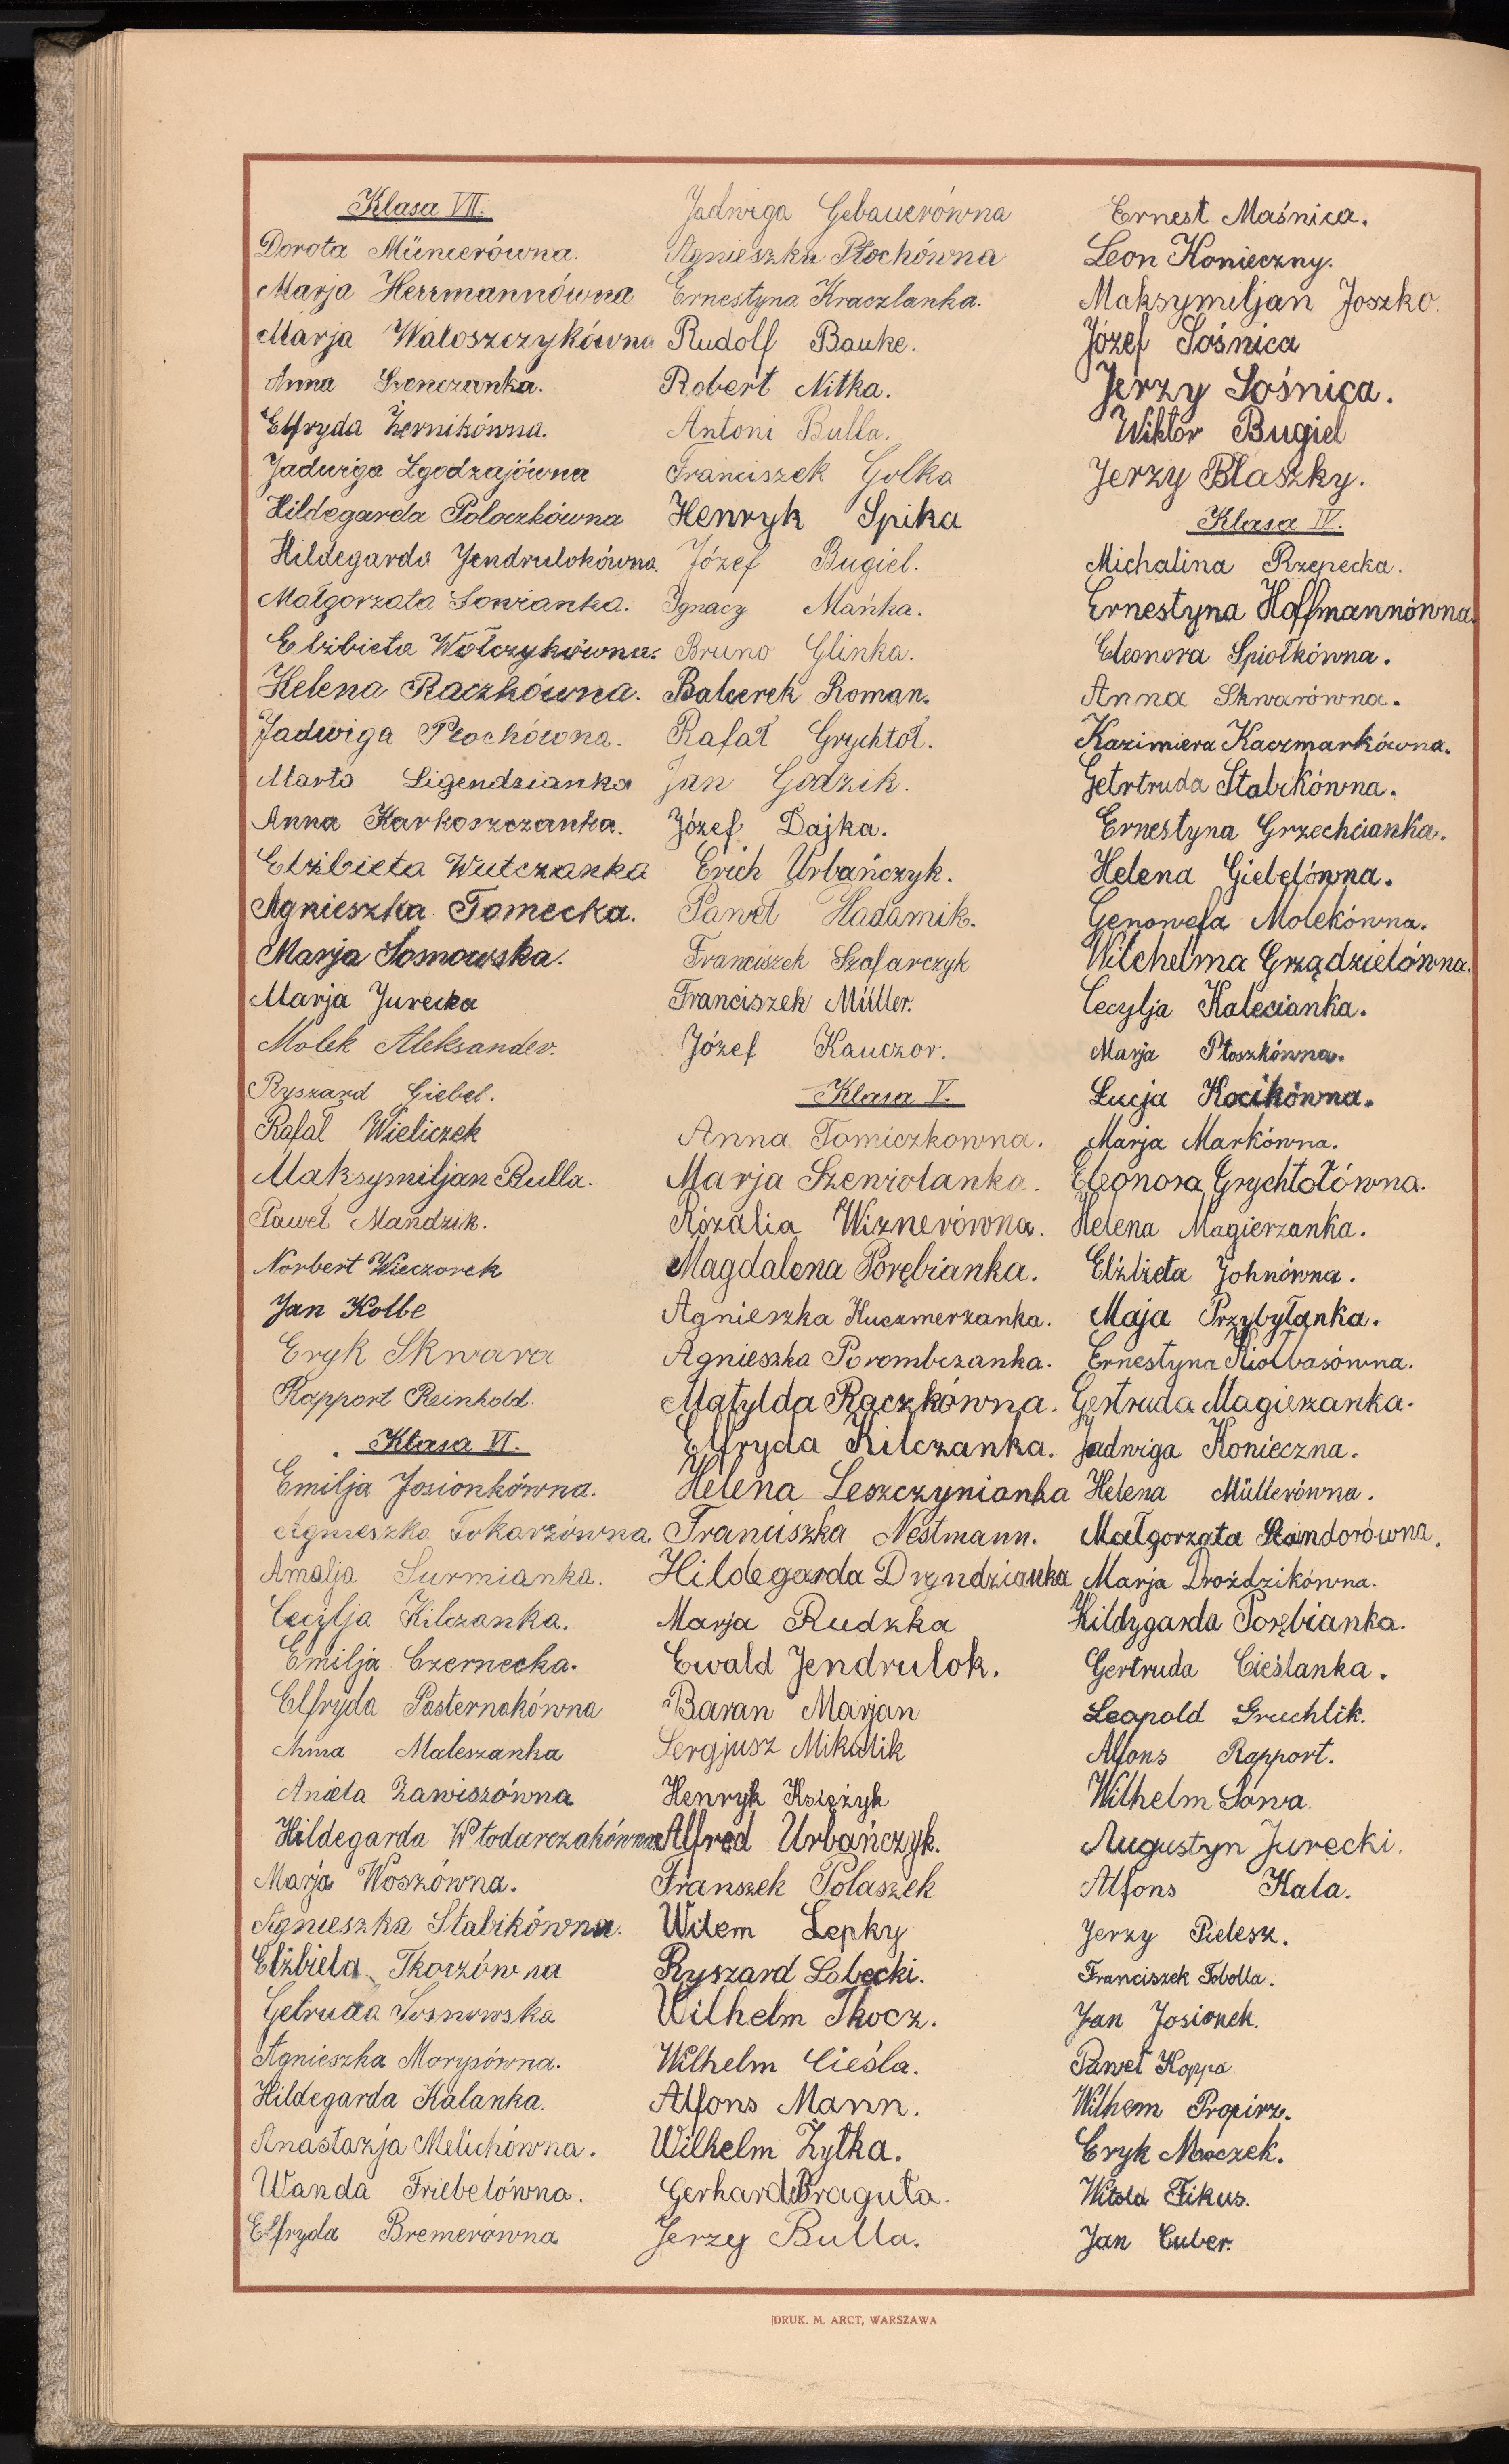 Klasa VII.
Dorota Müncerówna.
Marja Herrmannówna
Marja Wałoszczykówna
Anna Szenczanka.
Elfryda Żernikówna.
Jadwiga Zgodzajówna
Hildegarda Poloczkówna
Hildegarda Jendrulokówna.
Małgorzata Sowianka.
Elżbieta Wołczykówna.
Helena Raczkówna.
Jadwiga Płochówna.
Marta Ligendzianka
Anna Karkoszczanka.
Elżbieta Wutczanka
Agnieszka Tomecka.
Marja Sosnowska.
Marja Jurecka
Molek Aleksander.
Ryszard Giebel.
Rafał Wieliczek
Maksymiljan Bulla.
Paweł Mandzik.
Norbert Wieczorek
Jan Kolbe
Eryk Skwara
Rapport Reinhold.
Klasa VI.
Emilja Josionkówna.
Agnieszka Tokarzówna
Amalja Surmianka.
Cecylja Kilczanka.
Emilja Czernecka.
Elfryda Pasternakówna
Anna Maleszanka
Aniela Zawiszówna
Hildegarda Włodarczakówna
Marja Woszówna.
Agnieszka Stabikówna.
Elżbieta Tkoczówna
Getruda Sosnowska
Agnieszka Morysówna.
Hildegarda Kalanka.
Anastazja Melichówna.
Wanda Friebelówna.
Elfryda Bremerówna
Jadwiga Gebauerówna
Agnieszka Płochówna
Ernestyna Kraczlanka.
Rudolf Bauke.
Robert Nitka.
Antoni Bulla.
Franciszek Golka
Henryk Spika
Józef Bugiel.
Ignacy Mańka.
Bruno Glinka.
Balcerek Roman.
Rafał Grychtoł.
Jan Godzik.
Józef Dajka.
Erich Urbańczyk.
Paweł Hadamik.
Franciszek Szafarczyk
Franciszek Müller.
Józef Kauczor.
Klasa V.
Anna Tomiczkowna.
Marja Szewiolanka.
Rózalia Wiznerówna.
Magdalena Porębianka.
Agnieszka Kuczmerzanka.
Agnieszka Porombczanka.
Matylda Raczkówna.
Elfryda Kilczanka.
Helena Leszczynianka
Franciszka Nestmann.
Hildegarda Dryndzianka
Marja Rudzka
Ewald Jendrulok.
Baran Marjan
Sergjusz Mikulik
Henryk Księżyk
Alfred Urbańczyk.
Franszek Polaszek
Wilem Lepky
Ryszard Lobecki.
Wilhelm Tkocz.
Wilhelm Cieśla.
Alfons Mann.
Wilhelm Żytka.
Gerhard Draguła.
Jerzy Bulla.
Ernest Maśnica.
Leon Konieczny.
Maksymiljan Joszko.
Józef Sośnica
Jerzy Sośnica.
Wiktor Bugiel
Jerzy Blaszky.
Klasa IV.
Michalina Rzepecka.
Ernestyna Hoffmannówna.
Eleonora Spiołkówna.
Anna Skwarówna.
Kazimiera Kaczmarkówna.
Getrtruda Stabikówna.
Ernestyna Grzechcianka.
Helena Giebelówna.
Genowefa Molekówna.
Wilchelma Grządzielówna.
Cecylja Kalecianka.
Marja Płoszkówna.
Łucja Kocikówna.
Marja Markówna.
Eleonora Grychtołówna.
Helena Magierzanka.
Elżbieta Johnówna.
Maja Przybyłanka.
Ernestyna Kiołbasówna.
Gertruda Magierzanka.
Jadwiga Konieczna.
Helena Müllerówna.
Małgorzata Szindorówna.
Marja Droździkówna.
Hildygarda Porębianka.
Gertruda Cieślanka.
Leopold Gruchlik.
Alfons Rapport.
Wilhelm Sowa.
Augustyn Jurecki.
Alfons Kala.
Jerzy Pielesz.
Franciszek Tobolla.
Jan Josionek.
Paweł Koppa
Wilhem Propirz.
Eryk Maczek.
Witold Fikus.
Jan Cuber.
DRUK. M. ARCT, WARSZAWA